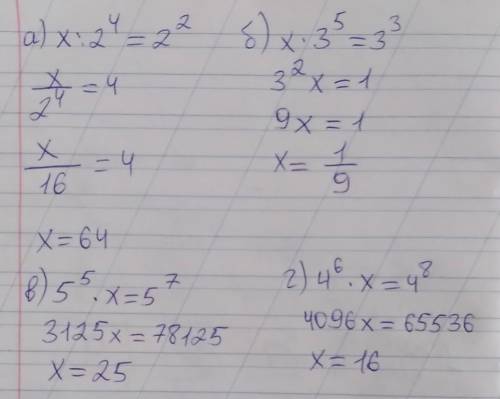 а) x : 2^4 = 2^2
x/2^4 = 4
x/16 = 4
x = 64
б) x · 3^5 = 3^3
3^2 x = 1
9x = 1
x = 1/9
в) 5^5 · x = 5^7
3125x = 78125
x = 25
г) 4^6 · x = 4^8
4096x = 65536
x = 16